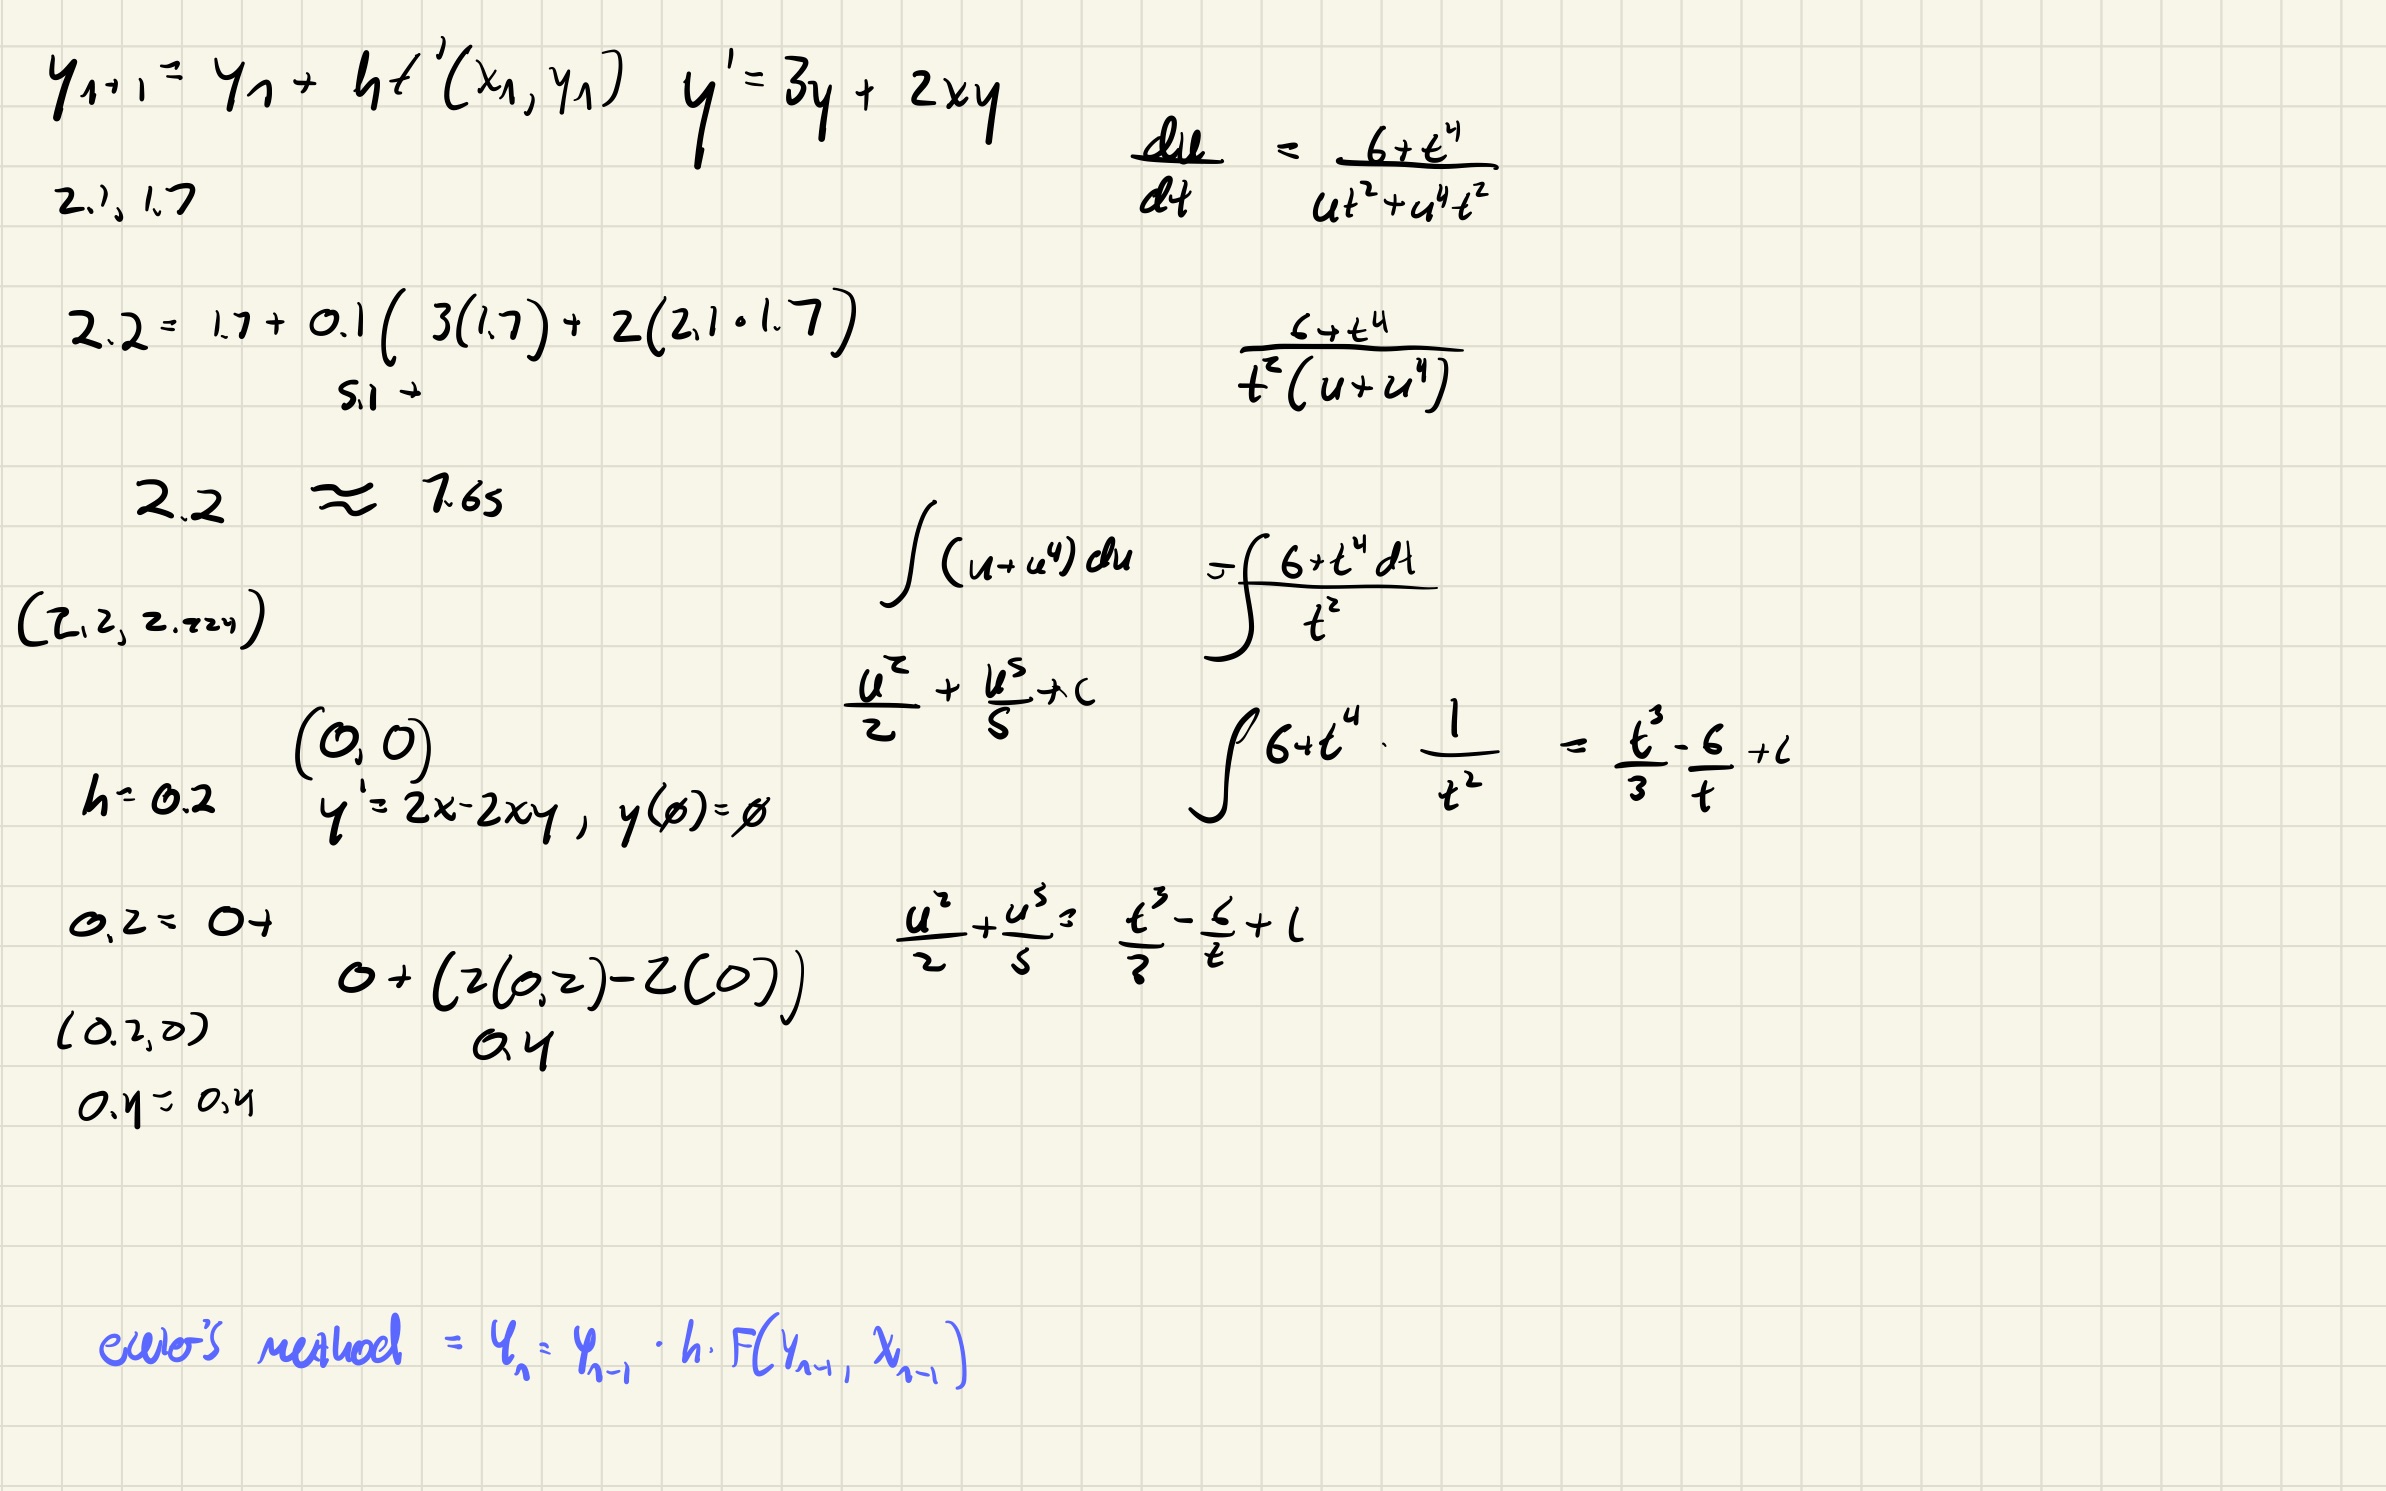 yₙ₊₁ = yₙ + hf'(xₙ, yₙ)   y' = 3y + 2xy
2.1, 1.7
2.2 = 1.7 + 0.1( 3(1.7) + 2(2.1 · 1.7)
5.1 +
2.2 ≈ 7.65
(2.2, 2.224)
(0, 0)
h = 0.2   y' = 2x - 2xy, y(0) = 0
0.2 = 0 +
0 + (2(0.2) - 2(0))
(0.2, 0)
0.4
0.4 = 0.4
du/dt = (6+t⁴)/(ut²+u⁴t²)
(6+t⁴)/(t²(u+u⁴))
∫(u+u⁴)du = ∫(6+t⁴ dt)/t²
u²/2 + u⁵/5 + c
∫6+t⁴ · 1/t² = t³/3 - 6/t + c
u²/2 + u⁵/5 = t³/3 - 6/t + c
euler's method = yₙ = yₙ₋₁ · h · F(yₙ₋₁, xₙ₋₁)